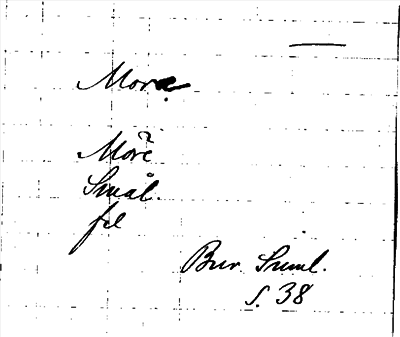 More
Morē
Smål.
fel
Bur. Suml.
s. 38